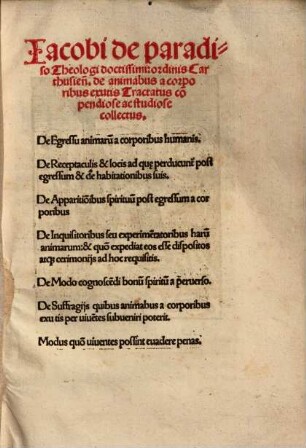 Iacobi de paradi-
so Theologi doctissimi: ordinis Car
thusieñ. de animabus a corpo
ribus exutis Tractatus cō
pendiose ac studiose
collectus.
De Egressu animarū a corporibus humanis.
De Receptaculis & locis ad quę perducunt̃ post
egressum & de habitationibus suis.
De Apparitiōibus spirituū post egressum a cor
poribus
De Inquisitoribus seu experimētatoribus harū
animarum: & quō expediat eos esse dispositos
atq; cerimonijs ad hoc requisitis.
De Modo cognoscēdi bonū spiritū a pverso.
De Suffragijs quibus animabus a corporibus
exutis per viuētes subueniri poterit.
Modus quō viuentes possint euadere penas.